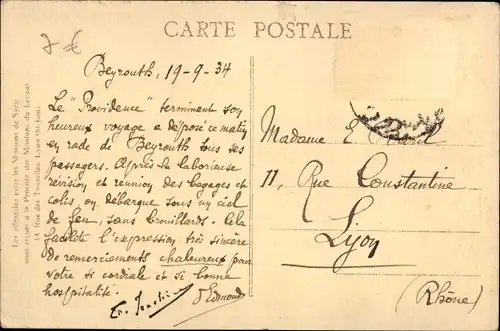 CARTE POSTALE
7 €
Beyrouth, 19-9-34
Le "Providence" terminant son
heureux voyage a déposé ce matin
en rade de Beyrouth tous ses
passagers. Après la laborieuse
révision et réunion des bagages et
colis, on débarque sous un ciel
de feu, sans brouillards. Cela
facilite l'expression très sincère
de remerciements chaleureux pour
votre si cordiale et si bonne
hospitalité.
Edmond
Madame E.
11, Rue Constantine
Lyon
(Rhône)
Les offrandes pour les Missions de Syrie
sont reçues à la Procure des Missions du Levant
Lyon